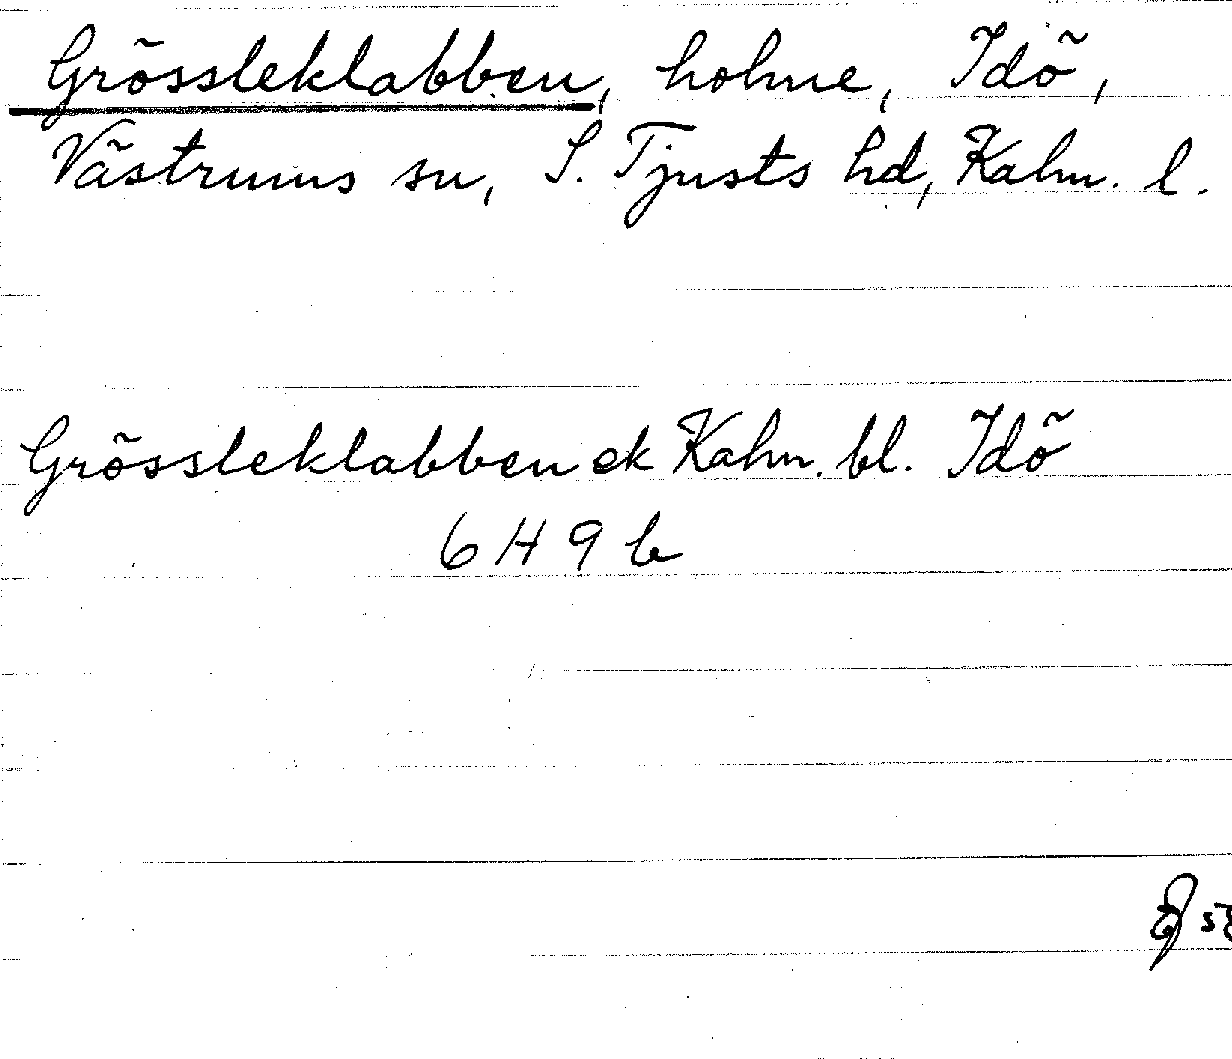 Grössleklabben, holme, Idö,
Västrums sn, S. Tjusts hd, Kalm. l.
Grössleklabben ek Kalm. bl. Idö
6 H 9 b